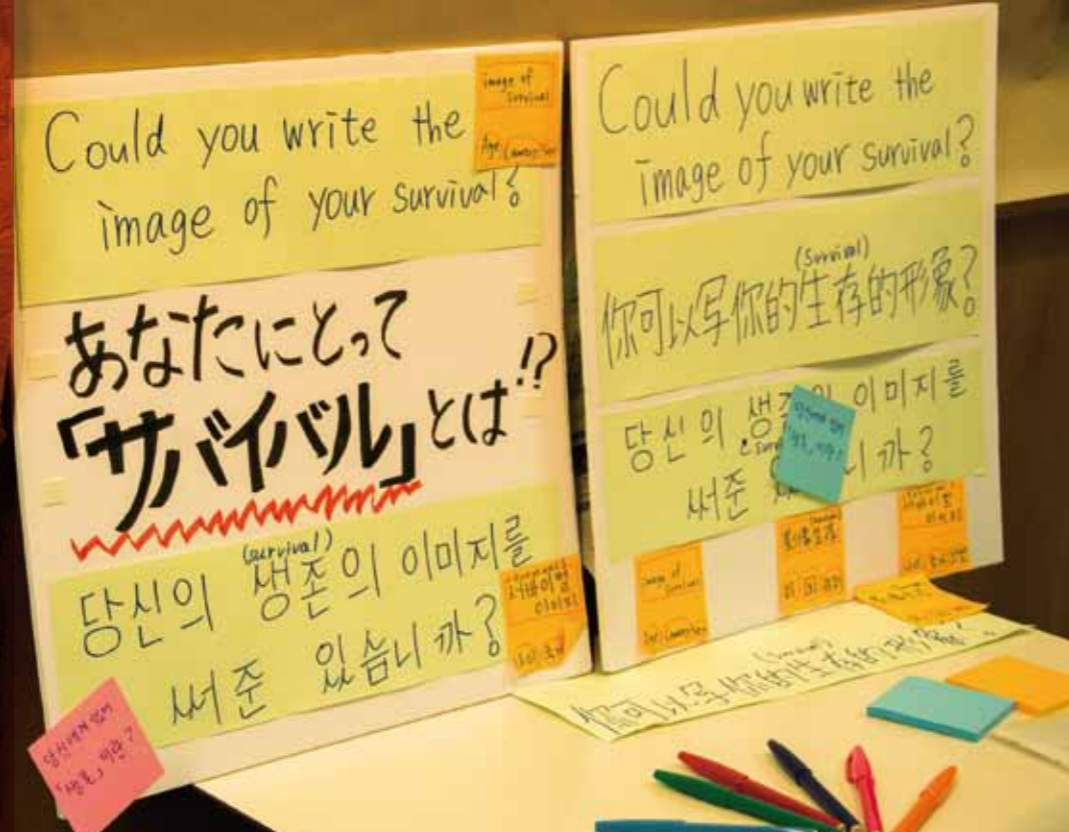 Could you write the
image of your survival?
image of
survival
Age
あなたにとって
「サバイバル」とは!?
(survival)
당신의 생존의 이미지를
써준 있습니까?
서바이벌
이미지
당신에게 있어
「생존」이란?
Could you write the
image of your survival?
(survival)
你可以写你的生存的形象?
당신의 이미지를
써준 니까?
image of
survival
(survival)
你可以写你的生存的